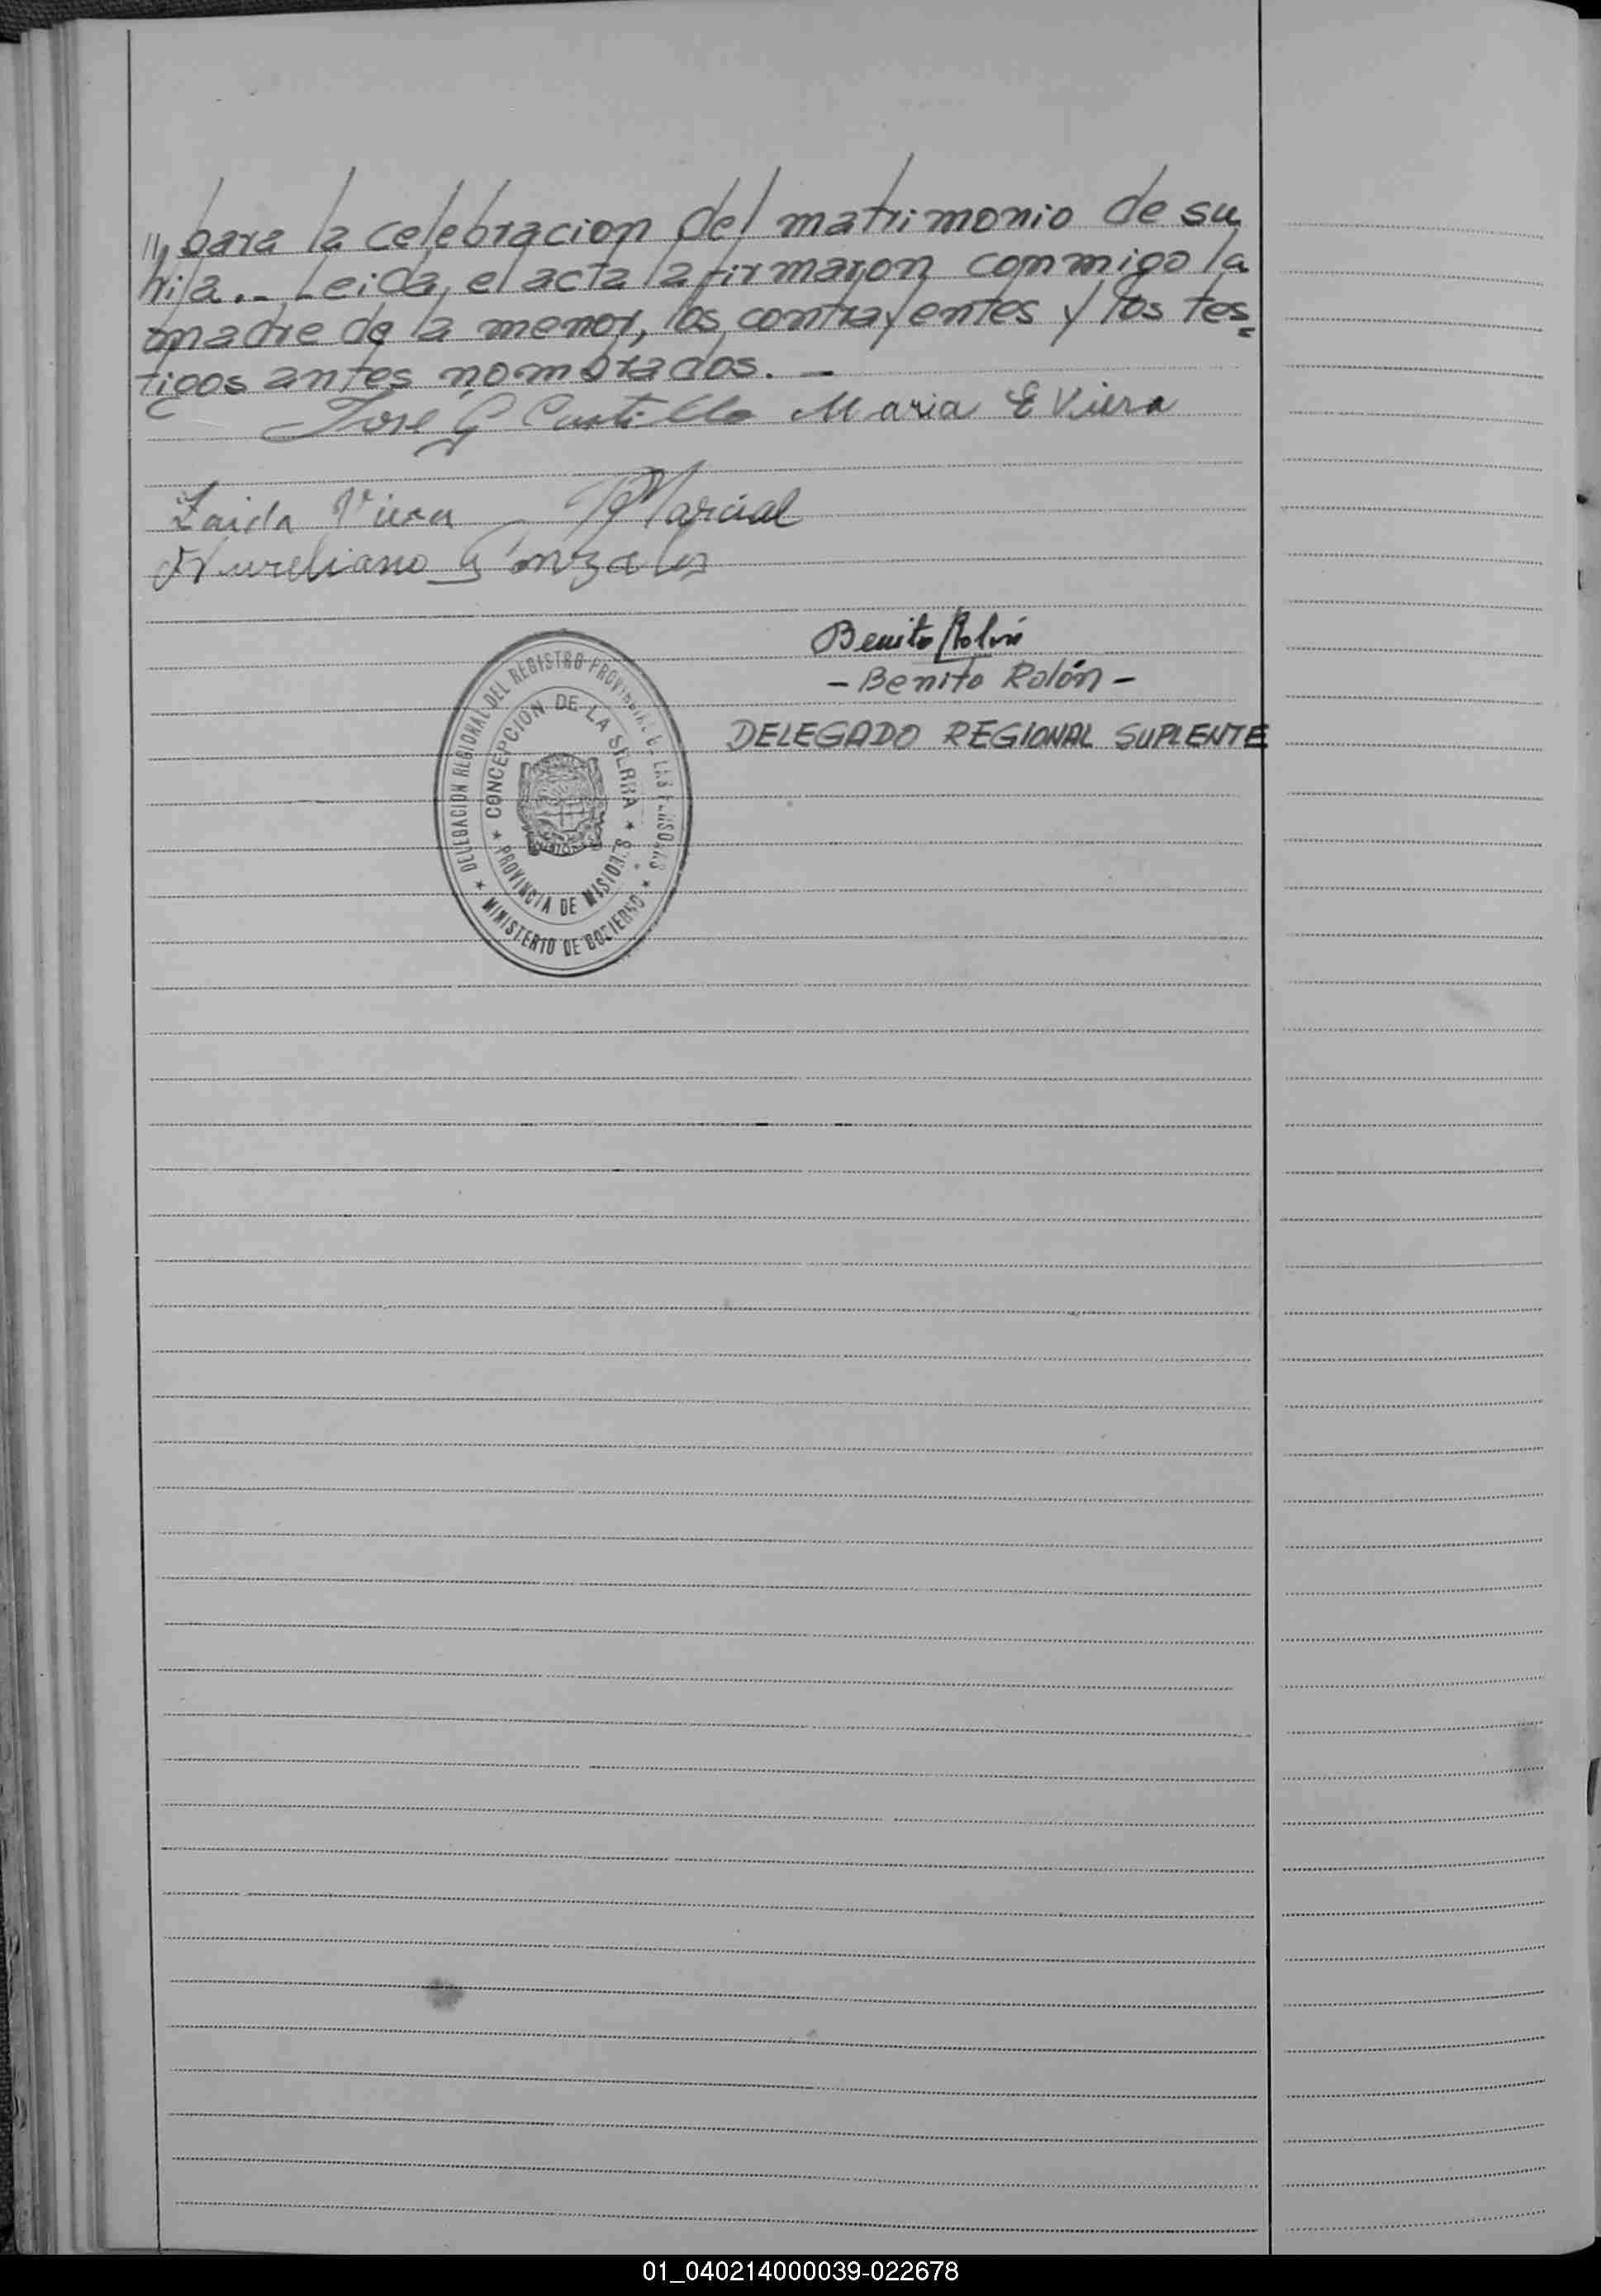 // para la celebracion del matrimonio de su
hija.- Leida el acta la firmaron conmigo la
madre de la menor, los contrayentes y los tes=
tigos antes nombrados. -
Jose G Castillo Maria E Viera
Zaida Viera Marcial
Aureliano Gonzalez
Benito Rolón
- Benito Rolón -
DELEGADO REGIONAL SUPLENTE
DELEGACION REGIONAL DEL REGISTRO PROVINCIAL DE LAS PERSONAS
★ MINISTERIO DE GOBIERNO ★
CONCEPCION DE LA SIERRA
★ PROVINCIA DE MISIONES ★
01_040214000039-022678